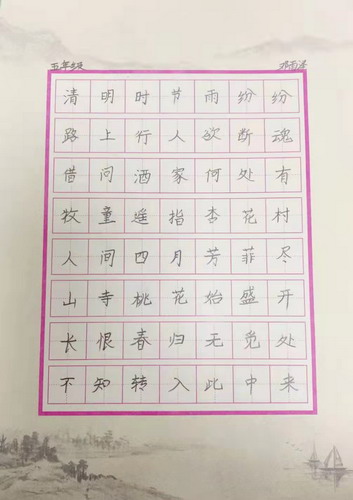 五年级
清明时节雨纷纷
路上行人欲断魂
借问酒家何处有
牧童遥指杏花村
人间四月芳菲尽
山寺桃花始盛开
长恨春归无觅处
不知转入此中来